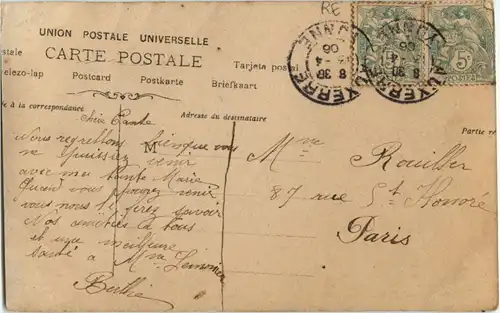 RF
UNION POSTALE UNIVERSELLE
CARTE POSTALE
Tarjeta postal
elezo-lap Postcard Postkarte Briefkaart
e à la correspondance
Adresse du destinataire
Partie
AUXERRE
YONNE
8 30
06
AUXERRE
YONNE
8 30
06
5c
Chère Tante
Nous regrettons bien que vous
ne puissiez venir
avec ma tante Marie
Quand vous pourrez venir
vous nous le ferez savoir
Nos amitiés à tous
et une meilleure
santé à Mme
Berthe
M
Mme Rouiller
87 rue St Honoré
Paris